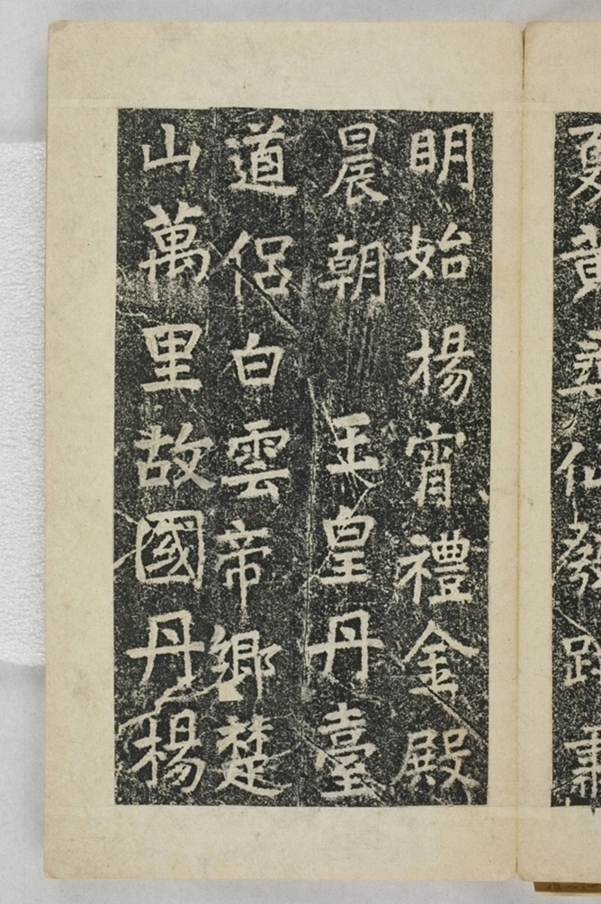 黃仙發跡
明始楊宵禮金殿
晨朝玉皇丹臺
道侶白雲帝鄉楚
山萬里故國丹楊